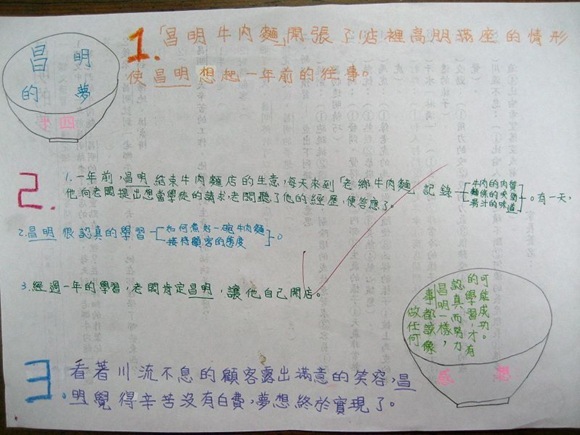 昌明
的夢
1.「昌明牛肉麵」開張了店裡高朋滿座的情形
使昌明想起一年前的往事。
2.
1.一年前,昌明結束牛肉麵店的生意,每天來到「老鄉牛肉麵」記錄
牛肉的肉質
麵條的
醬汁的味道
。有一天,
他向老闆提出想當學徒的請求,老闆聽了他的經歷,便答應了。
2.昌明很認真的學習
如何煮好一碗牛肉麵
接待顧客的態度
。
3.經過一年的學習,老闆肯定昌明,讓他自己開店。
做任何
事都應該像
昌明一樣,
認真而努力
的學習,才有
可能成功。
3.看著川流不息的顧客露出滿意的笑容,昌
明覺得辛苦沒有白費,夢想終於實現了。